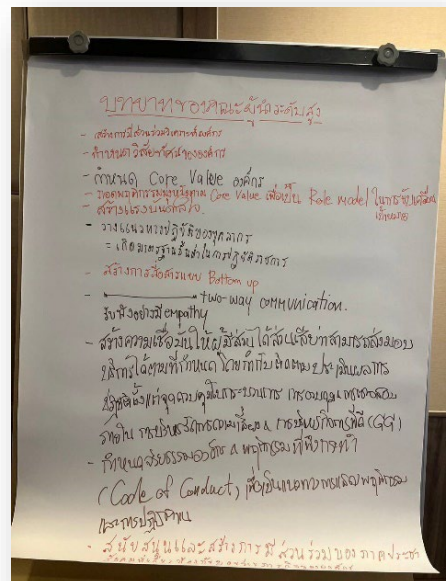 บทบาทของคณะผู้นำระดับสูง
- สร้างการมีส่วนร่วมวิเคราะห์องค์กร
- กำหนดวิสัยทัศน์ขององค์กร
- กำหนด Core Value องค์กร
- Core Value เพื่อเป็น Role model ในการขับเคลื่อน
- สร้างแรงบันดาลใจ
- วางแนวทางปฏิบัติของบุคลากร
= เกิดมาตรฐานขั้นต่ำในการปฏิบัติราชการ
- สร้างการสื่อสารแบบ Bottom up
- two-way communication.
รับฟังอย่างมี empathy
- สร้างความเชื่อมั่นให้ผู้มีส่วนได้ส่วนเสียว่าสามารถส่งมอบ
บริการได้ตามที่กำหนด โดยกำกับติดตามประเมินผลการ
ปฏิบัติตั้งแต่จุดควบคุมในกระบวนการ การตรวจสอบ
ภายใน การบริหารจัดการความเสี่ยง & การบริหารกิจการที่ดี (GG)
- กำหนดจริยธรรมองค์กร & พฤติกรรมที่พึงกระทำ
(Code of Conduct) เพื่อเป็นแนวทางการแสดงพฤติกรรม
และการปฏิบัติตน
- สนับสนุนและสร้างการมีส่วนร่วมของภาคประชา